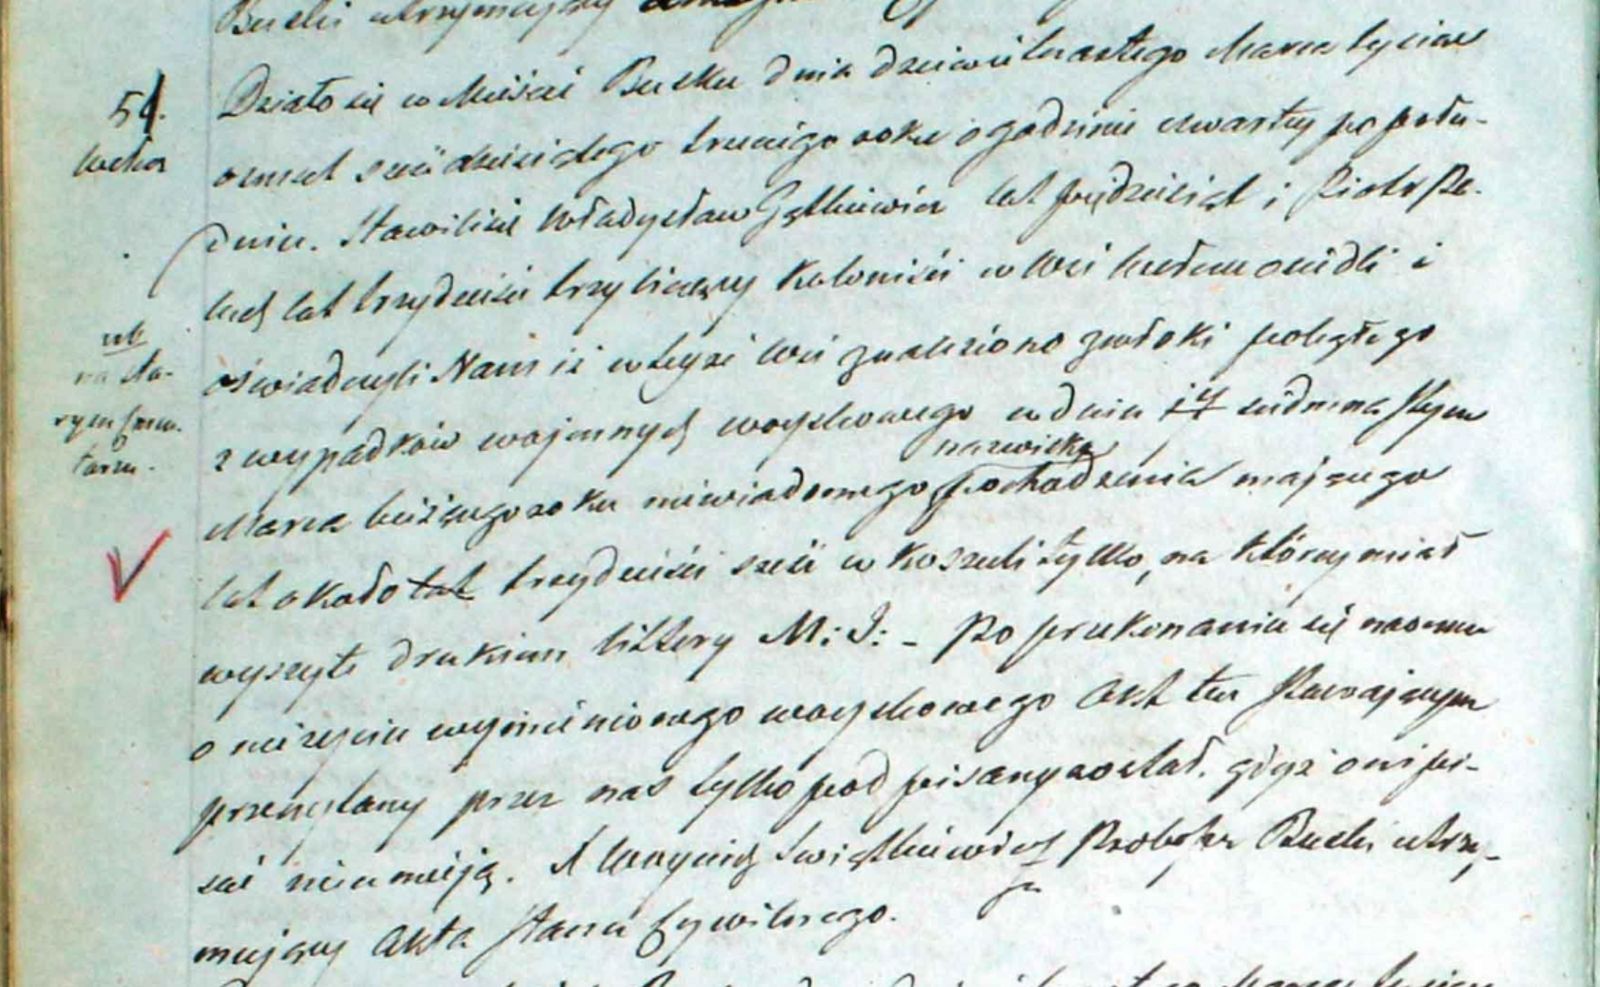 Buski utrzymujący
51.
Wełcza
Działo się w Mieście Busku dnia dziewiętnastego Marca tysiąc
osmset sześćdziesiątego trzeciego roku o godzinie czwartej po połu-
dniu. Stawili się Władysław Gątkiewicz lat pięćdziesiąt i Piotr Pa-
lat trzydzieści trzy liczący Koloniści w Wsi osiedli i
oświadczyli Nam iż w tejże Wsi znaleziono zwłoki poległego
z wypadków wojennych wojskowego w dniu 17 siedmnastym
nazwiska
Marca bieżącego roku niewiadomego pochodzenia mającego
lat około lat trzydzieści sześć w koszuli tylko, na której miał
wyszyte drukiem littery M: J: - Po przekonaniu się naocznem
o zejściu wymienionego wojskowego Akt ten Stawającym
przeczytany przez nas tylko podpisany został. gdyż oni pi-
sać nie umieją. X Świątkiewicz Proboszcz Buski utrzy-
mujący Akta Stanu Cywilnego.
na sta-
rym Cmen-
tarzu.